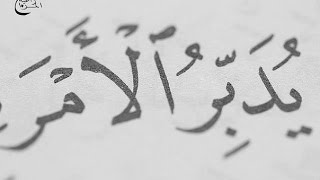 يُدَبِّرُ ٱلْأَمْرَ